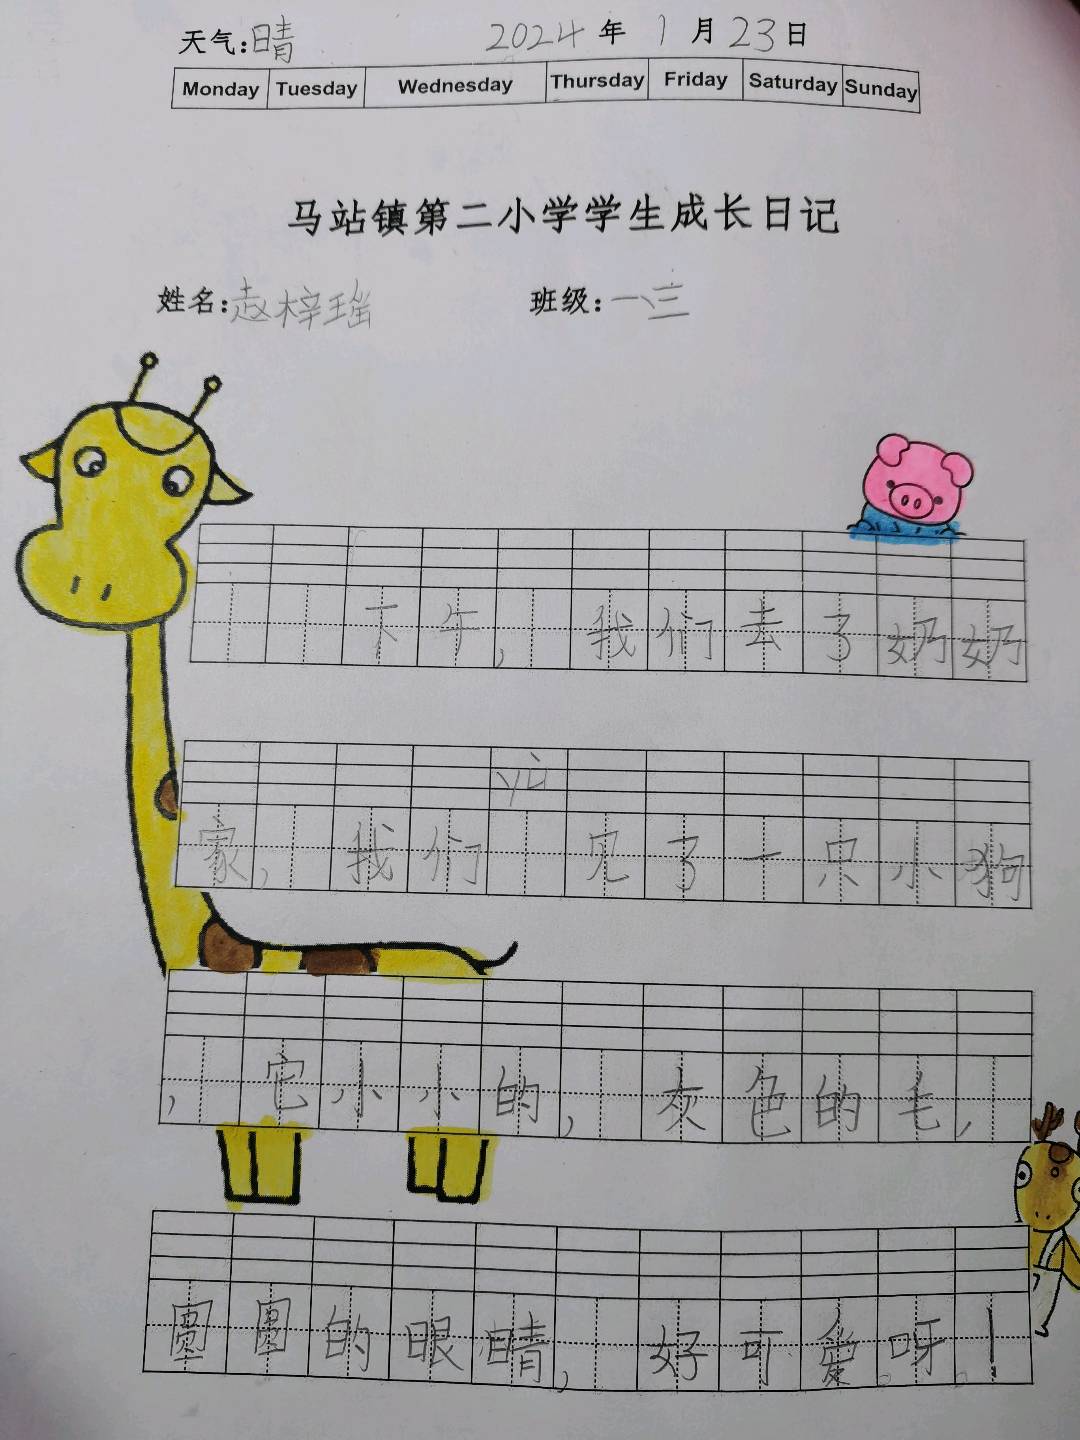 天气:晴 2024年1月23日
Monday Tuesday Wednesday Thursday Friday Saturday Sunday
马站镇第二小学学生成长日记
姓名:赵梓瑶 班级:一、三
下午,我们去了奶奶
yù
家,我们 见了一只小狗
,它小小的,灰色的毛,
圆圆的眼睛,好可爱呀!